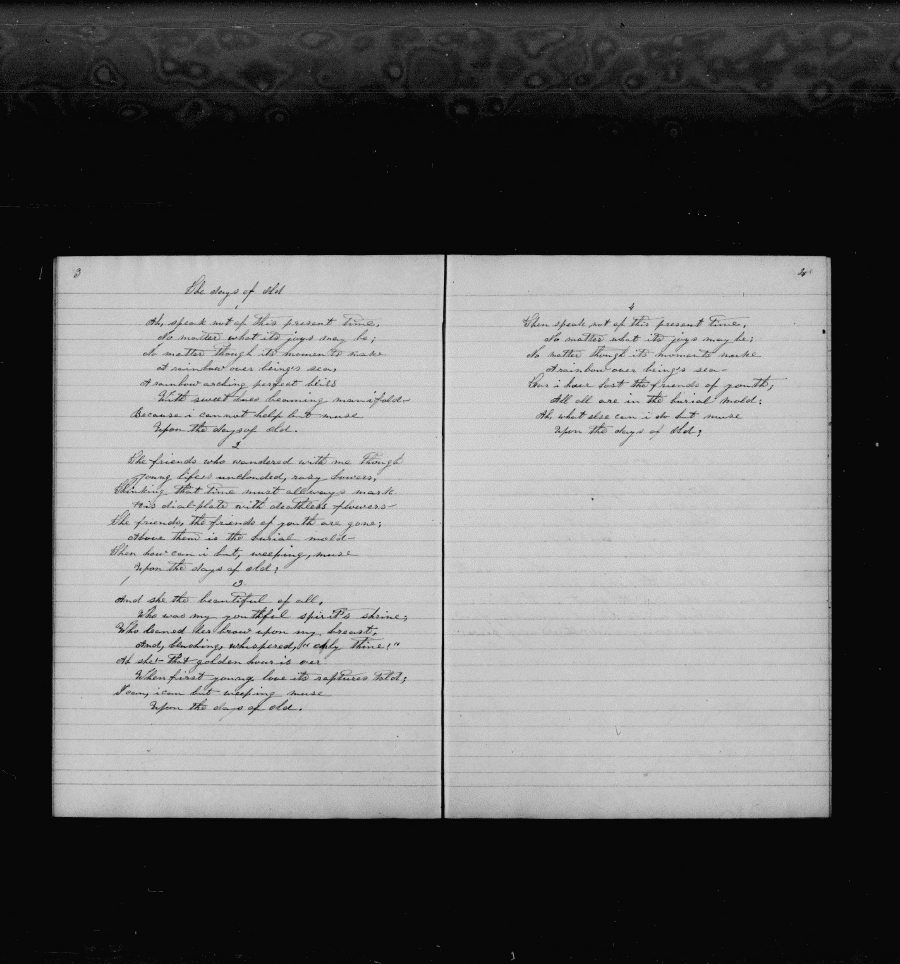 3
The days of Old
1
Ah, speak not of this present time,
No matter what its joys may be;
No matter though its moments make
A rainbow over being's sea,
A rainbow arching perfect bliss
With sweet hues beaming manifold-
Because i cannot help but muse
Upon the days of old.
2
The friends who wandered with me through
young life's unclouded, rosy bowers,
Thinking that time must allways mark
His dial plate with deathless flowers-
The friends, the friends of youth are gone;
Above them is the burial mold-
Then how can i but, weeping, muse
Upon the days of old;
3
And she the beautiful of all,
Who was my youthful spirit's shrine;
Who leaned her brow upon my breast,
And, blushing, whispered, "only thine!"
Ah she- that golden hour is over
When first young love its raptures told;
I can, i can but weeping muse
Upon the days of old.
4
4
Then speak not of this present time,
No matter what its joys may be;
No matter though its moments make
A rainbow over being's sea-
For i have lost the friends of youth,
All all are in the burial mold;
Ah, what else can i do but muse
Upon the days of old;